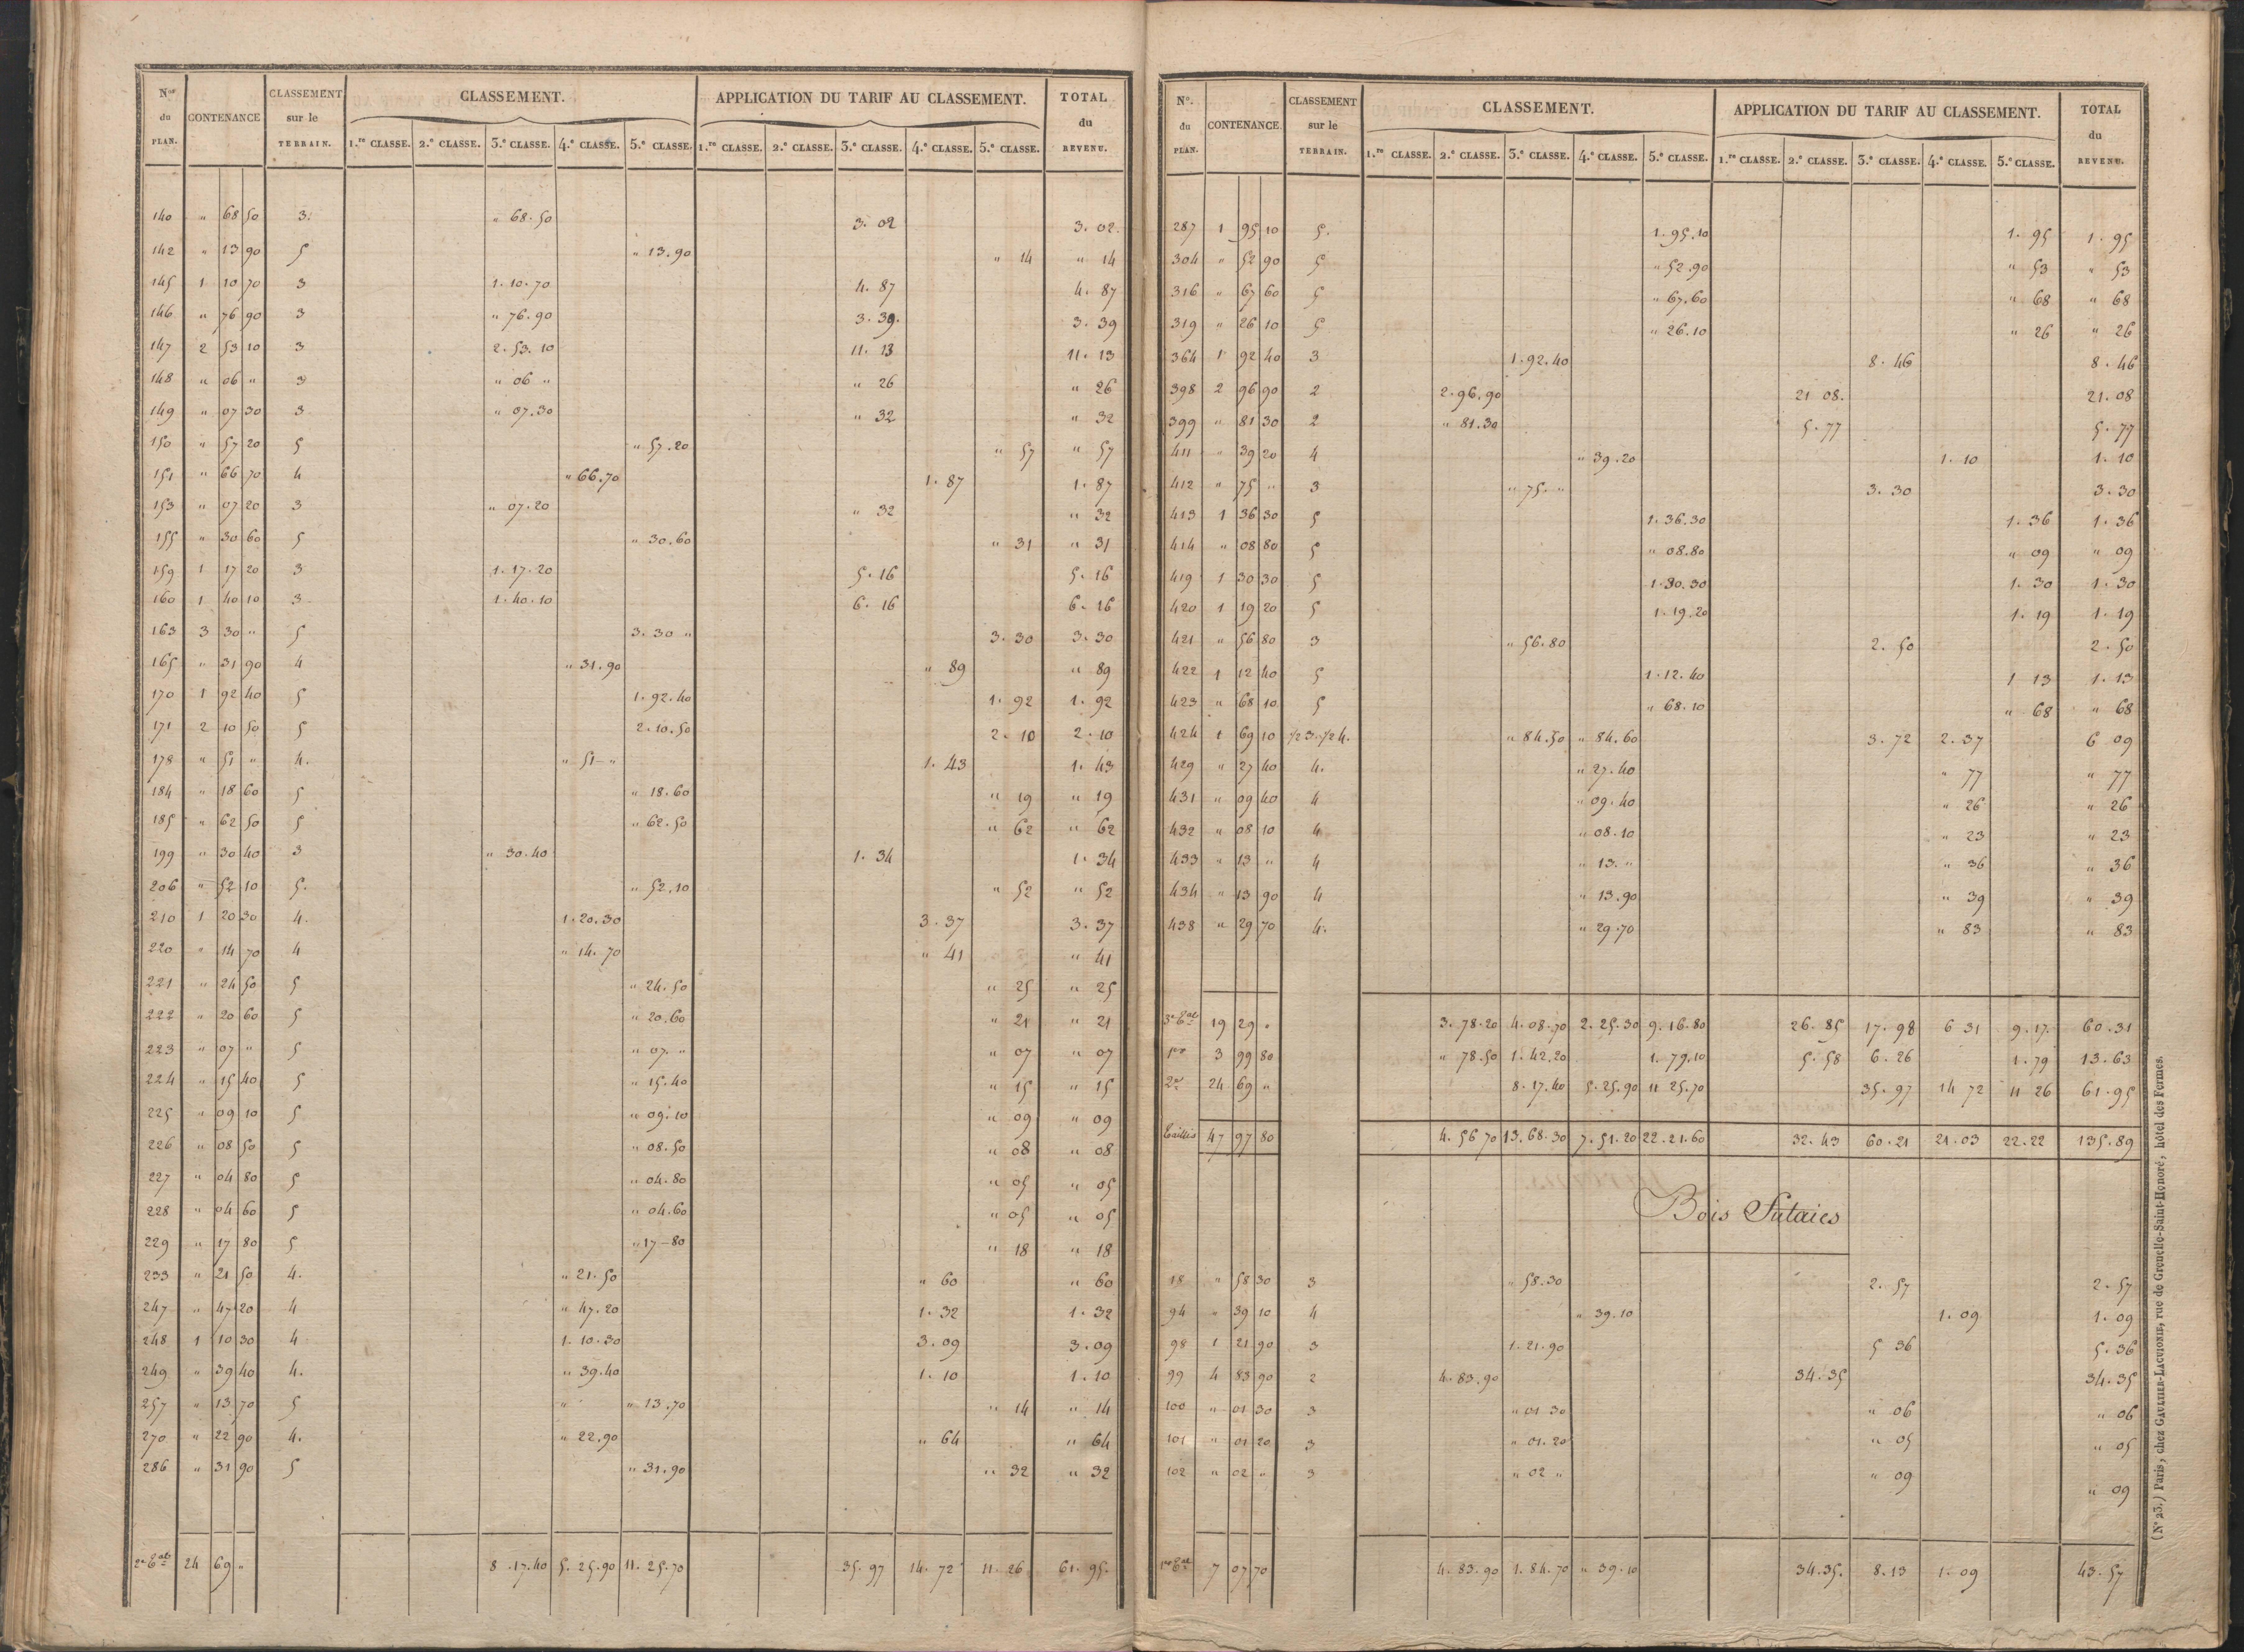 Nos du PLAN. CONTENANCE CLASSEMENT sur le TERRAIN. CLASSEMENT. APPLICATION DU TARIF AU CLASSEMENT. TOTAL du REVENU.
1.re CLASSE. 2.e CLASSE. 3.e CLASSE. 4.e CLASSE. 5.e CLASSE. 1.re CLASSE. 2.e CLASSE. 3.e CLASSE. 4.e CLASSE. 5.e CLASSE.
140 " 68 50 3. " 68.50 3. 02 3. 02.
142 " 13 90 5 " 13.90 " 14 " 14
145 1 10 70 3 1.10.70 4. 87 4. 87
146 " 76 90 3 " 76.90 3. 39. 3. 39
147 2 53 10 3 2.53.10 11. 13 11. 13
148 " 06 " 3 " 06 " " 26 " 26
149 " 07 30 3 " 07.30 " 32 " 32
150 " 57 20 5 " 57.20 " 57 " 57
151 " 66 70 4 " 66.70 1. 87 1. 87
153 " 07 20 3 " 07.20 " 32 " 32
155 " 30 60 5 " 30.60 " 31 " 31
159 1 17 20 3 1.17.20 5. 16 5. 16
160 1 40 10 3 1.40.10 6. 16 6. 16
163 3 30 " 5 3. 30 " 3. 30 3. 30
165 " 31 90 4 " 31.90 " 89 " 89
170 1 92 40 5 1.92.40 1. 92 1. 92
171 2 10 50 5 2.10.50 2. 10 2. 10
178 " 51 " 4. " 51 " 1. 43 1. 43
184 " 18 60 5 " 18.60 " 19 " 19
185 " 62 50 5 " 62.50 " 62 " 62
199 " 30 40 3 " 30.40 1. 34 1. 34
206 " 52 10 5. " 52.10 " 52 " 52
210 1 20 30 4. 1.20.30 3. 37 3. 37
220 " 14 70 4 " 14.70 " 41 " 41
221 " 24 50 5 " 24.50 " 25 " 25
222 " 20 60 5 " 20.60 " 21 " 21
223 " 07 " 5 " 07. " " 07 " 07
224 " 15 40 5 " 15.40 " 15 " 15
225 " 09 10 5 " 09.10 " 09 " 09
226 " 08 50 5 " 08.50 " 08 " 08
227 " 04 80 5 " 04.80 " 05 " 05
228 " 04 60 5 " 04.60 " 05 " 05
229 " 17 80 5 " 17-80 " 18 " 18
233 " 21 50 4. " 21.50 " 60 " 60
247 " 47 20 4 " 47.20 1. 32 1. 32
248 1 10 30 4 1.10.30 3. 09 3. 09
249 " 39 40 4. " 39.40 1. 10 1. 10
257 " 13 70 5 " " 13.70 " 14 " 14
270 " 22 90 4. " 22.90 " 64 " 64
286 " 31 90 5 " 31.90 " 32 " 32
24 69 " 8.17.40 5.25.90 11.25.70 35. 97 14. 72 11. 26 61. 95.
No. du PLAN. CONTENANCE. CLASSEMENT sur le TERRAIN. CLASSEMENT. APPLICATION DU TARIF AU CLASSEMENT. TOTAL du REVENU.
1.re CLASSE. 2.e CLASSE. 3.e CLASSE. 4.e CLASSE. 5.e CLASSE. 1.re CLASSE. 2.e CLASSE. 3.e CLASSE. 4.e CLASSE. 5.e CLASSE.
287 1 95 10 5. 1.95.10 1. 95 1. 95
304 " 52 90 5 " 52.90 " 53 " 53
316 " 67 60 5 " 67.60 " 68 " 68
319 " 26 10 5 " 26.10 " 26 " 26
364 1 92 40 3 1.92.40 8. 46 8. 46
398 2 96 90 2 2.96.90 21 08. 21. 08
399 " 81 30 2 " 81.30 5. 77 5. 77
411 " 39 20 4 " 39.20 1. 10 1. 10
412 " 75 " 3 " 75. " 3. 30 3. 30
413 1 36 30 5 1.36.30 1. 36 1. 36
414 " 08 80 5 " 08.80 " 09 " 09
419 1 30 30 5 1.30.30 1. 30 1. 30
420 1 19 20 5 1.19.20 1. 19 1. 19
421 " 56 80 3 " 56.80 2. 50 2. 50
422 1 12 40 5 1.12.40 1 13 1. 13
423 " 68 10 5 " 68.10 " 68 " 68
424 1 69 10 1/2 3. 1/2 4. " 84.50 " 84.60 3. 72 2. 37 6 09
429 " 27 40 4. " 27.40 " 77 " 77
431 " 09 40 4 " 09.40 " 26 " 26
432 " 08 10 4 " 08.10 " 23 " 23
433 " 13 " 4 " 13. " " 36 " 36
434 " 13 90 4 " 13.90 " 39 " 39
438 " 29 70 4. " 29.70 " 83 " 83
19 29 " 3.78.20 4.08.70 2.25.30 9.16.80 26. 85 17. 98 6 31 9. 17. 60. 31
3 99 80 " 78.50 1.42.20 1.79.10 5. 58 6. 26 1. 79 13. 63
24 69 " 8.17.40 5.25.90 11 25.70 35. 97 14 72 11 26 61. 95
Taillis 47 97 80 4.56 70 13.68.30 7.51.20 22.21.60 32. 43 60. 21 21. 03 22. 22 135. 89
Bois Futaies
18 " 58 30 3 " 58.30 2. 57 2. 57
94 " 39 10 4 " 39.10 1. 09 1. 09
98 1 21 90 3 1.21.90 5 36 5. 36
99 4 83 90 2 4.83.90 34. 35 34. 35
100 " 01 30 3 " 01 30 " 06 " 06
101 " 01 20 3 " 01.20 " 05 " 05
102 " 02 " 3 " 02 " " 09 " 09
7 07 70 4.83.90 1.84.70 " 39.10 34.35. 8. 13 1. 09 43. 57
(No 23.) Paris, chez GAULTIER-LAGUIONIE, rue de Grenelle-Saint-Honoré, hôtel des Fermes.